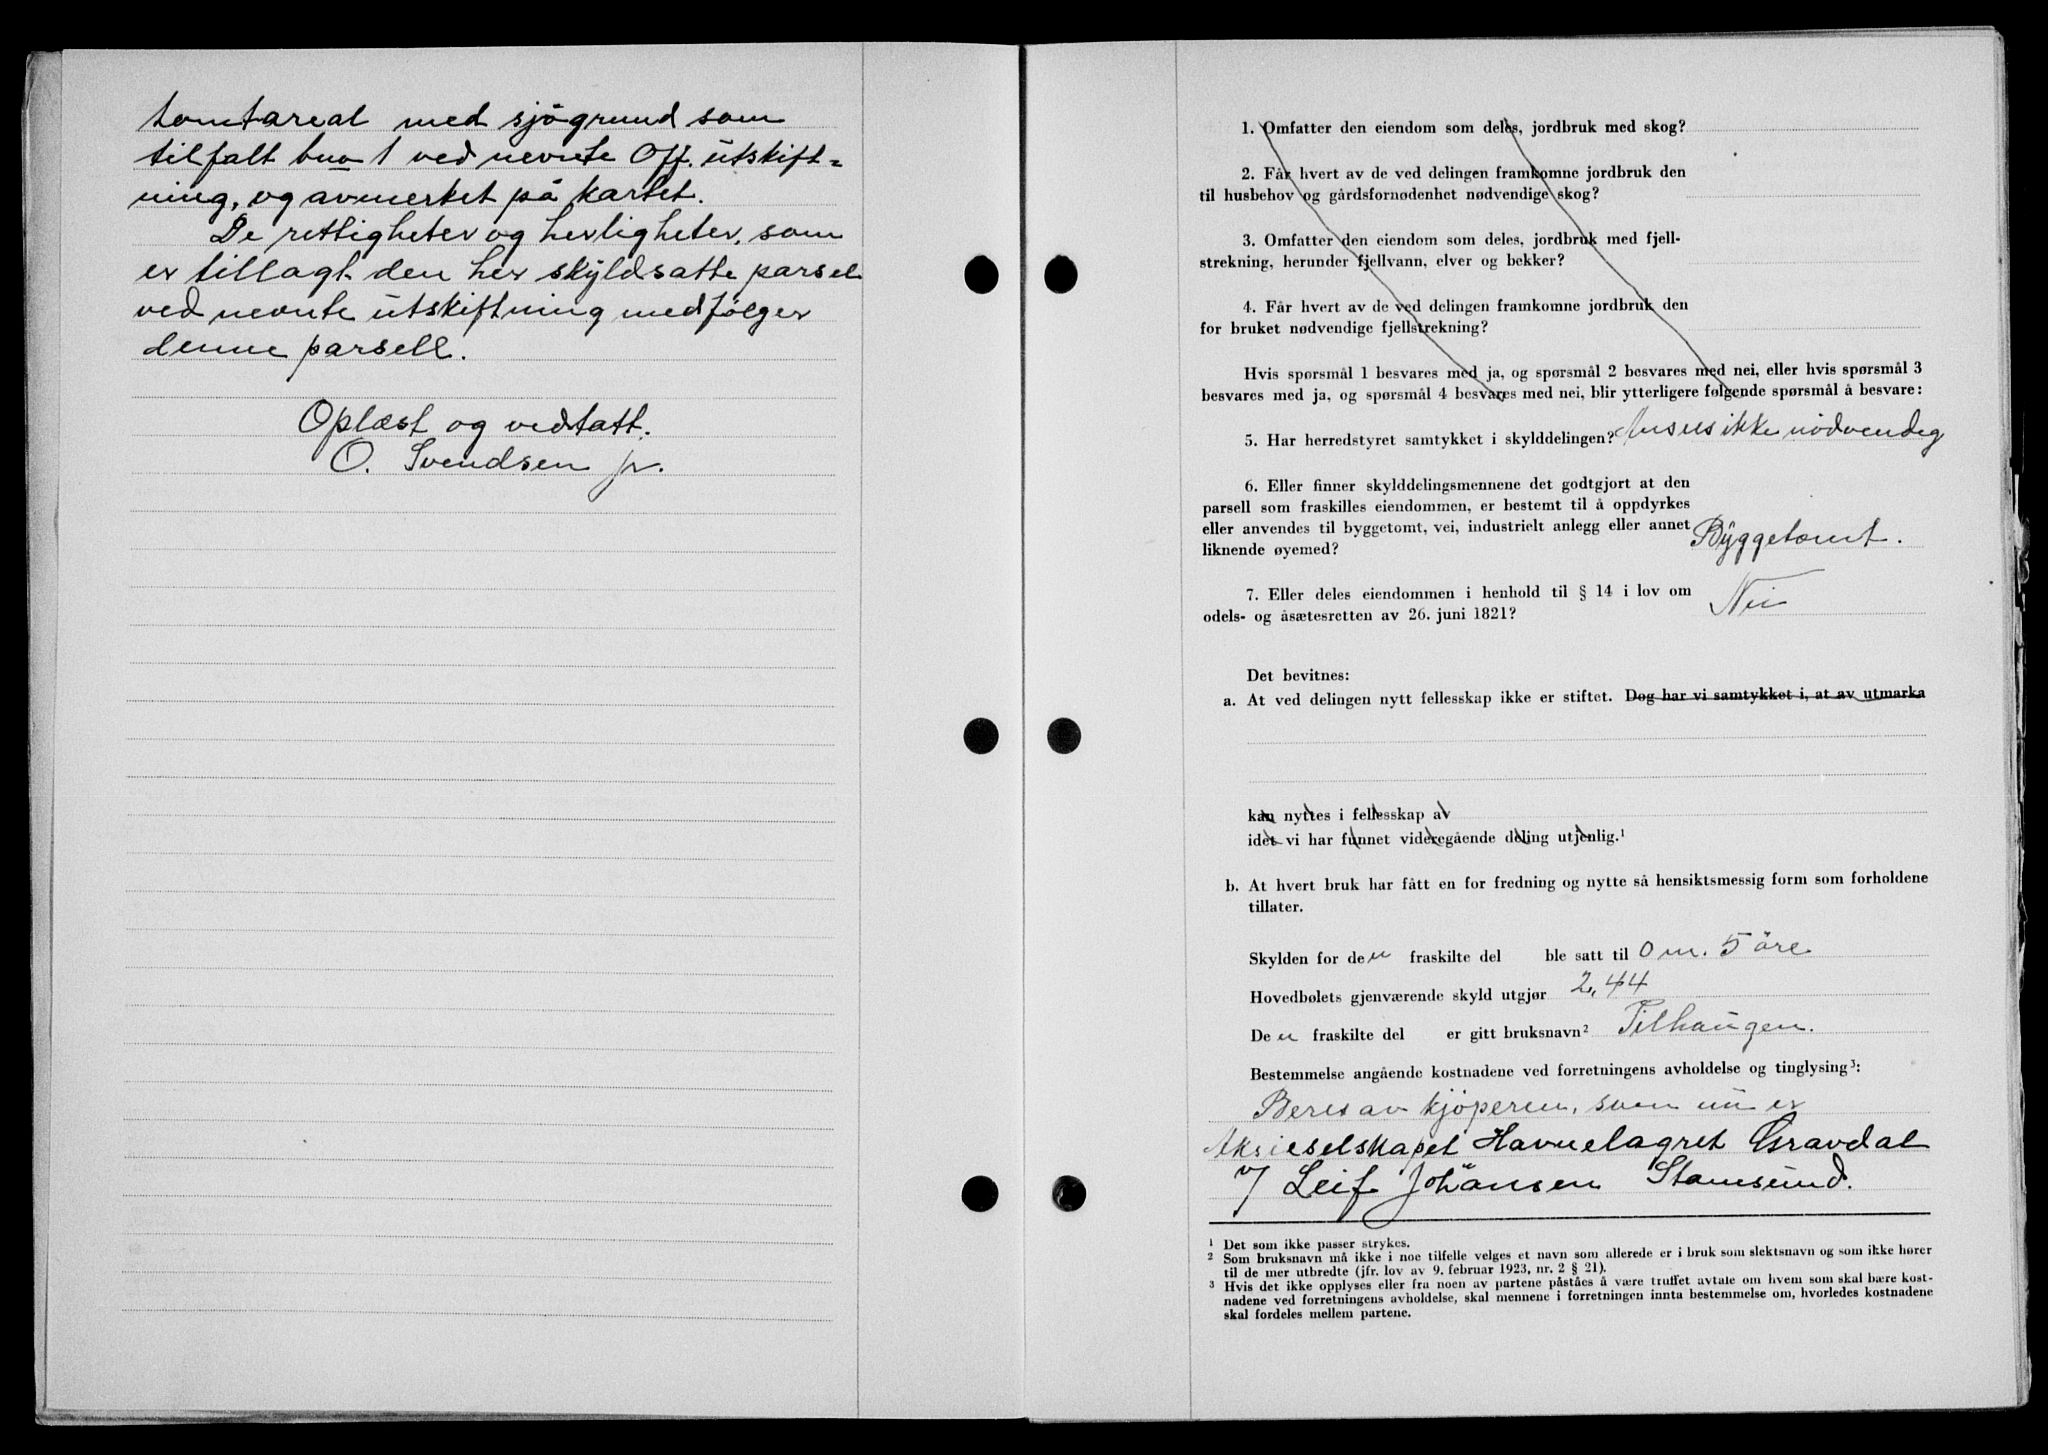 tomtareal med sjøgrund som
tilfalt bruk 1 ved nevnte Off. utskift-
ning, og avmerket på kartet.
De rettigheter og herligheter, som
er tillagt den her skyldsatte parsel
ved nevnte utskiftning medfølger
denne parsell.
Oplæst og vedtatt.
O. Svendsen jr.
1. Omfatter den eiendom som deles, jordbruk med skog?
2. Får hvert av de ved delingen framkomne jordbruk den
til husbehov og gårdsfornødenhet nødvendige skog?
3. Omfatter den eiendom som deles, jordbruk med fjell-
strekning, herunder fjellvann, elver og bekker?
4. Får hvert av de ved delingen framkomne jordbruk den
for bruket nødvendige fjellstrekning?
Hvis spørsmål 1 besvares med ja, og spørsmål 2 besvares med nei, eller hvis spørsmål 3
besvares med ja, og spørsmål 4 besvares med nei, blir ytterligere følgende spørsmål å besvare:
5. Har herredstyret samtykket i skylddelingen? Ansees ikke nødvendig
6. Eller finner skylddelingsmennene det godtgjort at den
parsell som fraskilles eiendommen, er bestemt til å oppdyrkes
eller anvendes til byggetomt, vei, industrielt anlegg eller annet
liknende øyemed? Byggetomt.
7. Eller deles eiendommen i henhold til § 14 i lov om
odels- og åsætesretten av 26. juni 1821? Nei
Det bevitnes:
a. At ved delingen nytt fellesskap ikke er stiftet. Dog har vi samtykket i, at av utmarka
kan nyttes i fellesskap av
idet vi har funnet videregående deling utjenlig.¹
b. At hvert bruk har fått en for fredning og nytte så hensiktsmessig form som forholdene
tillater.
Skylden for den fraskilte del ble satt til 0 m. 5 øre
Hovedbølets gjenværende skyld utgjør 2,44
Den fraskilte del er gitt bruksnavn² Tilhaugen.
Bestemmelse angående kostnadene ved forretningens avholdelse og tinglysing³:
Beres av kjøperen, som nu er
Aksieselskapet Havnelagret Gravdal
v/ Leif Johansen Stamsund.
¹ Det som ikke passer strykes.
² Som bruksnavn må ikke i noe tilfelle velges et navn som allerede er i bruk som slektsnavn og som ikke hører
til de mer utbredte (jfr. lov av 9. februar 1923, nr. 2 § 21).
³ Hvis det ikke opplyses eller fra noen av partene påståes å være truffet avtale om hvem som skal bære kost-
nadene ved forretningens avholdelse, skal mennene i forretningen innta bestemmelse om, hvorledes kostnadene
skal fordeles mellem partene.